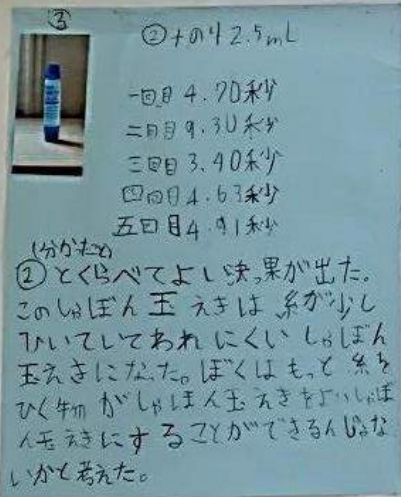 ③
②+のり2.5mL
一回目4.70秒
二回目9.30秒
三回目3.40秒
四回目4.63秒
五回目4.91秒
(分かたこと)
②とくらべてよい決っ果が出た。
このしゃぼん玉えきは糸が少し
ひいていてわれにくいしゃぼん
玉えきになった。ぼくはもっと糸を
ひく物がしゃぼん玉えきをよいしゃぼ
ん玉えきにすることができるんじゃな
いかと考えた。